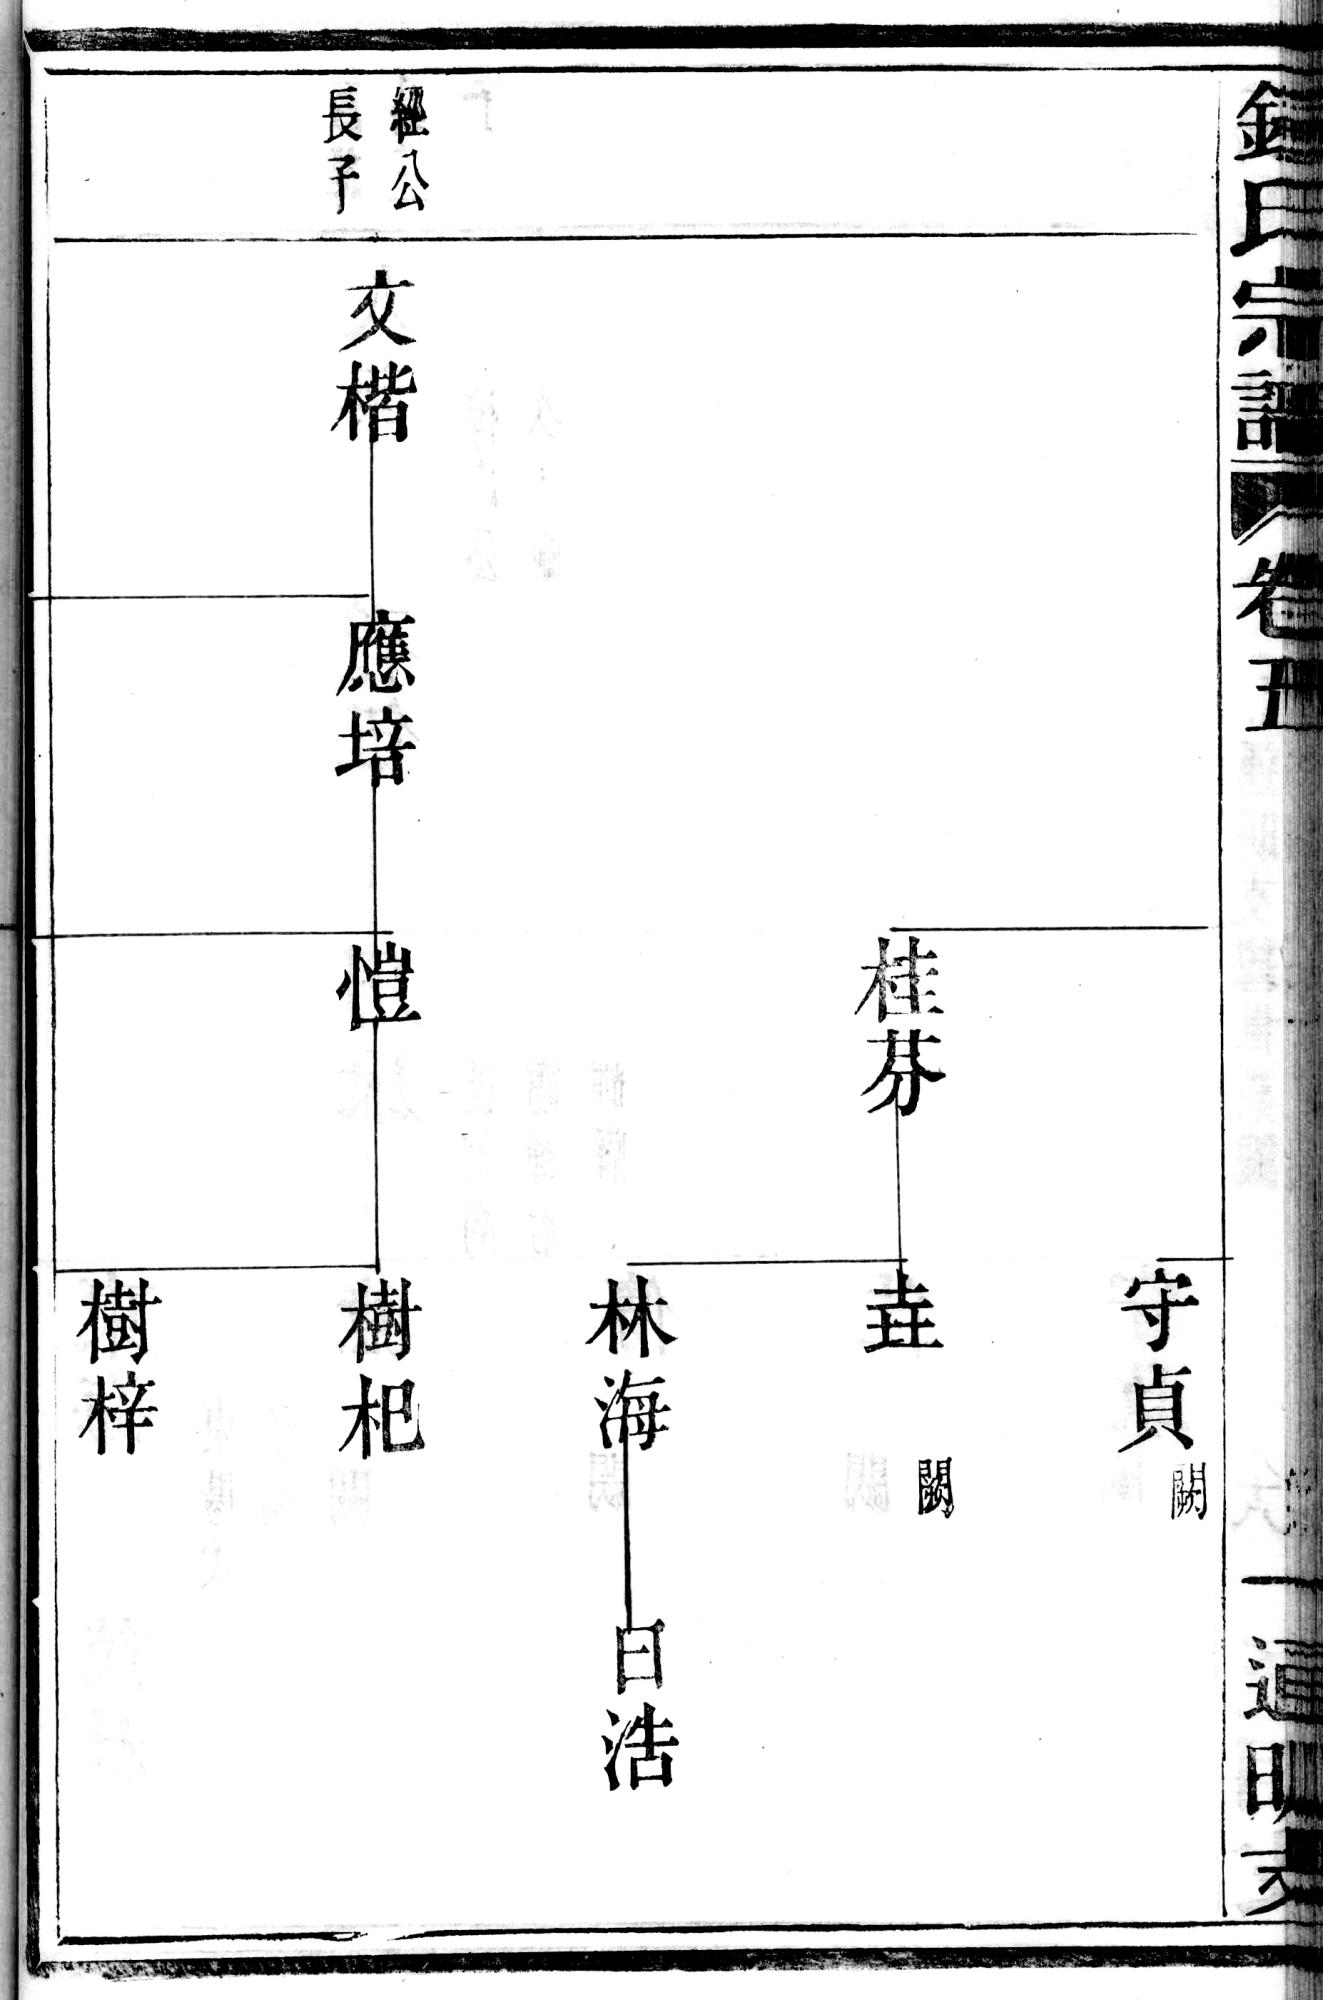 鍾氏宗譜
卷五
一
道明支
守貞
闕
桂芬
垚
闕
林海
日浩
經公
長子
文楷
應培
愷
樹杞
樹梓